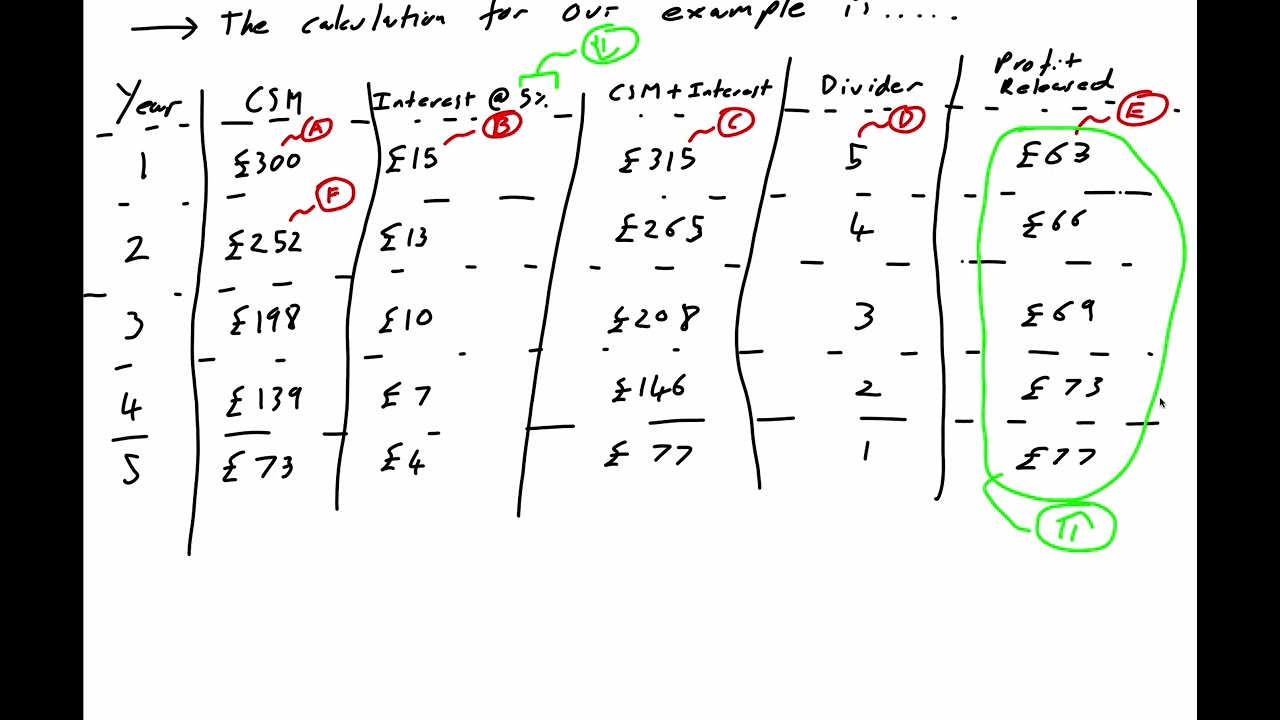 → The calculation for our example is.....
Year CSM Interest @ 5% CSM + Interest Divider Profit Released
A B C D E
1 £300 £15 £315 5 £63
F
2 £252 £13 £265 4 £66
3 £198 £10 £208 3 £69
4 £139 £7 £146 2 £73
5 £73 £4 £77 1 £77